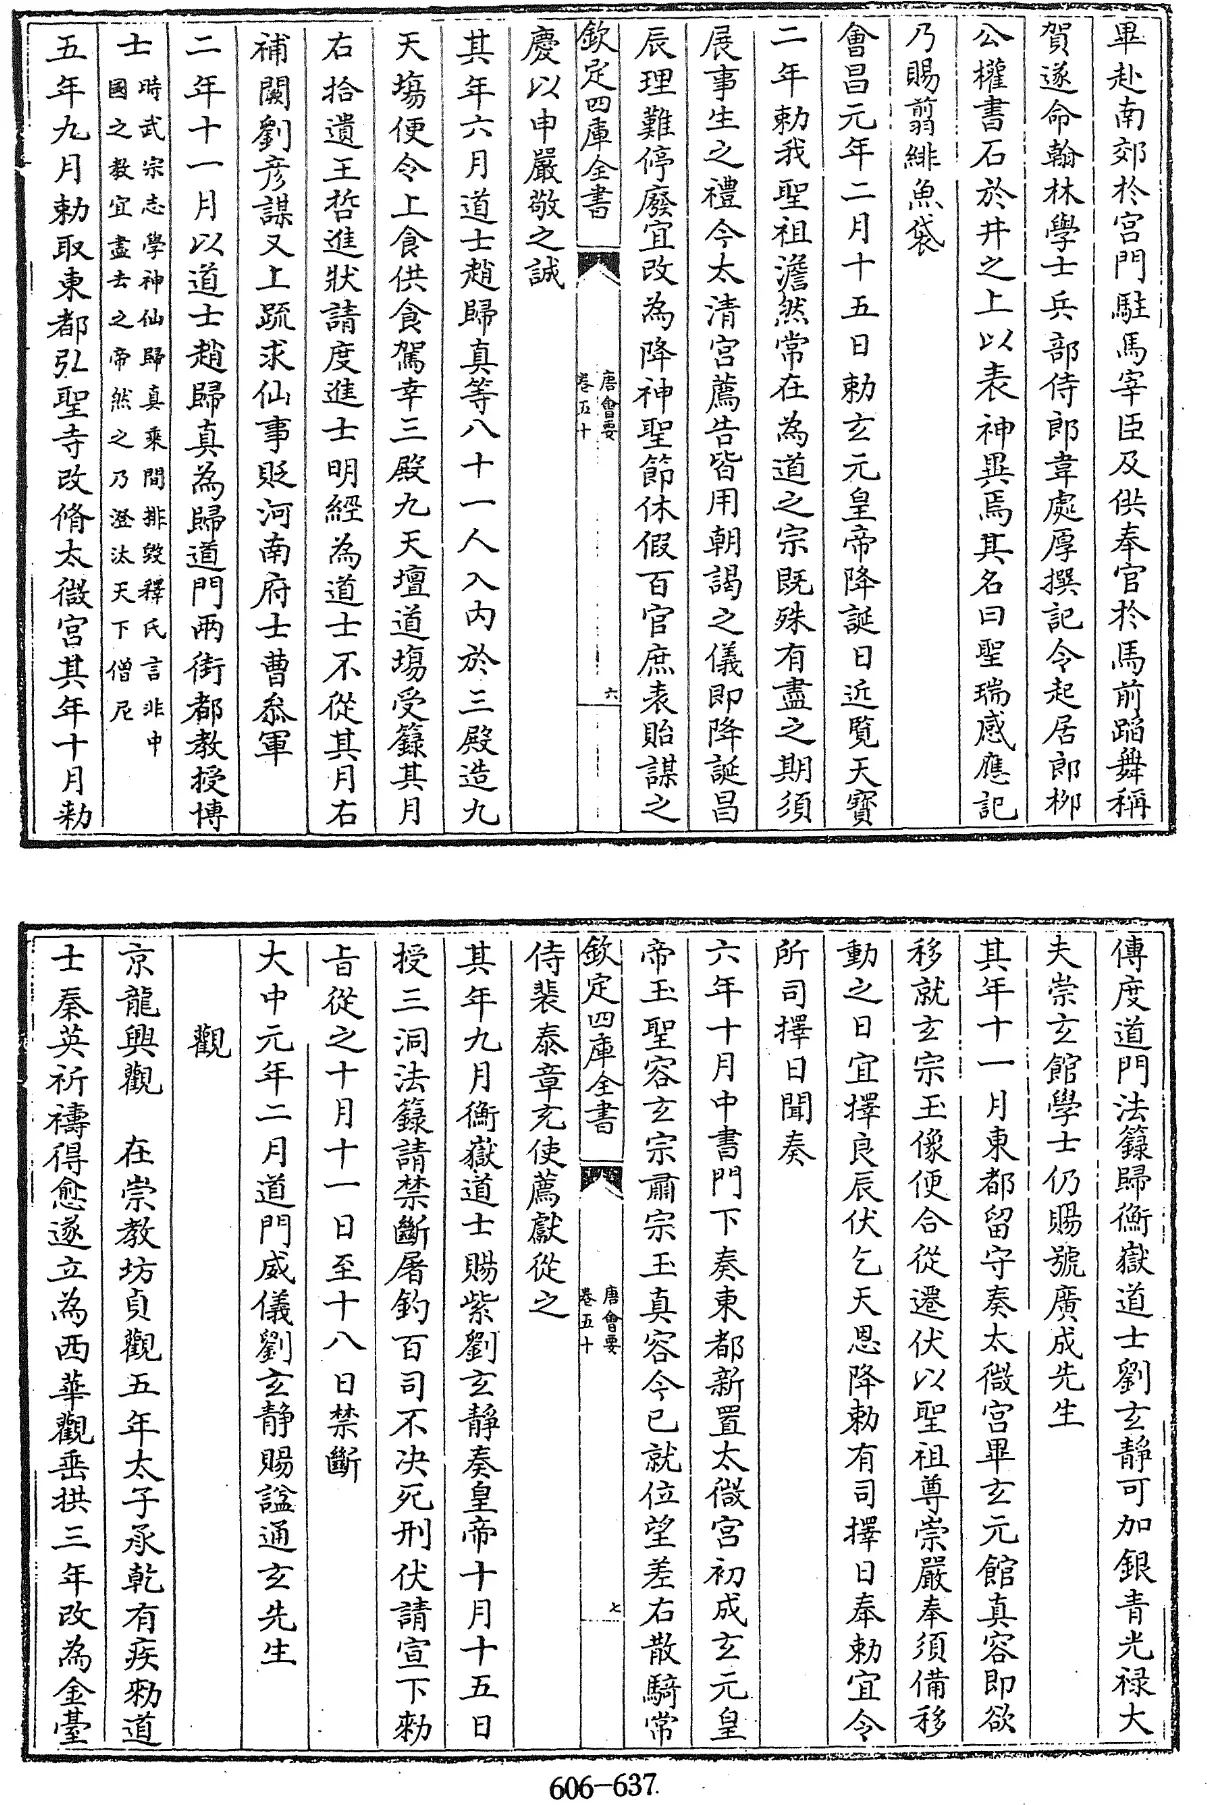 畢赴南郊於宮門駐馬宰臣及供奉官於馬前蹈舞稱
賀遂命翰林學士兵部侍郎韋處厚撰記令起居郎柳
公權書石於井之上以表神異焉其名曰聖瑞感應記
乃賜翦緋魚袋
會昌元年二月十五日勅玄元皇帝降誕日近覽天寶
二年勅我聖祖澹然常在為道之宗既殊有盡之期須
展事生之禮今太清宮薦告皆用朝謁之儀即降誕昌
辰理難停廢宜改為降神聖節休假百官庶表貽謀之
欽定四庫全書
唐會要
卷五十
六
慶以申嚴敬之誠
其年六月道士趙歸真等八十一人入內於三殿造九
天塲便令上食供食駕幸三殿九天壇道塲受籙其月
右拾遺王哲進狀請度進士明經為道士不從其月右
補闕劉彥謀又上疏求仙事貶河南府士曹叅軍
二年十一月以道士趙歸真為歸道門兩街都教授博
士時武宗志學神仙歸真乘間排毀釋氏言非中
國之教宜盡去之帝然之乃澄汰天下僧尼
五年九月勅取東都弘聖寺改脩太微宮其年十月勅
傳度道門法籙歸衡嶽道士劉玄靜可加銀青光禄大
夫崇玄館學士仍賜號廣成先生
其年十一月東都留守奏太微宮畢玄元館真容即欲
移就玄宗玉像便合從遷伏以聖祖尊崇嚴奉須備移
動之日宜擇良辰伏乞天恩降勅有司擇日奉勅宜令
所司擇日聞奏
六年十月中書門下奏東都新置太微宮初成玄元皇
帝玉聖容玄宗肅宗玉真容今已就位望差右散騎常
欽定四庫全書
唐會要
卷五十
七
侍裴泰章充使薦獻從之
其年九月衡嶽道士賜紫劉玄靜奏皇帝十月十五日
授三洞法籙請禁斷屠釣百司不決死刑伏請宣下勅
旨從之十月十一日至十八日禁斷
大中元年二月道門威儀劉玄靜賜諡通玄先生
觀
京龍興觀　在崇教坊貞觀五年太子承乾有疾勅道
士秦英祈禱得愈遂立為西華觀垂拱三年改為金臺
606-637